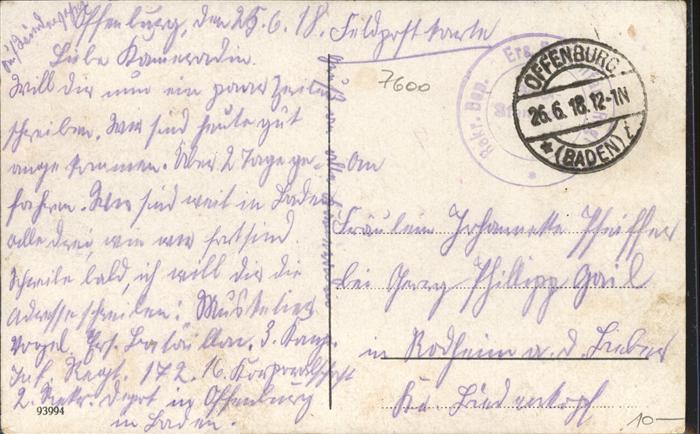 Offenburg, den 25.6.18. Feldpostkarte
Liebe Kameradin.
Will dir nun ein paar Zeilen
schreiben. Wir sind heute gut
angekommen. Über 2 Tage ge-
fahren. Wir sind weit in Baden
alle drei, wie wir fort sind
Schreibe bald, ich will dir die
Adresse schreiben: Musketier
Vogel, Ers. Bataillon. 3. Komp.
Inf. Regt. 172. 16. Korporalschaft
2. Rekr. Depot in Offenburg
in Baden.
Gruß an alle
7600
Rekr. Dep.
Ers.
OFFENBURG
26.6.18.12-1N
*(BADEN)
An
Fräulein Johannette Pfeiffer
bei Georg Phillipp Gail
in Rodheim a. d. Bieber
Kr. Biedenkopf
93994
10-